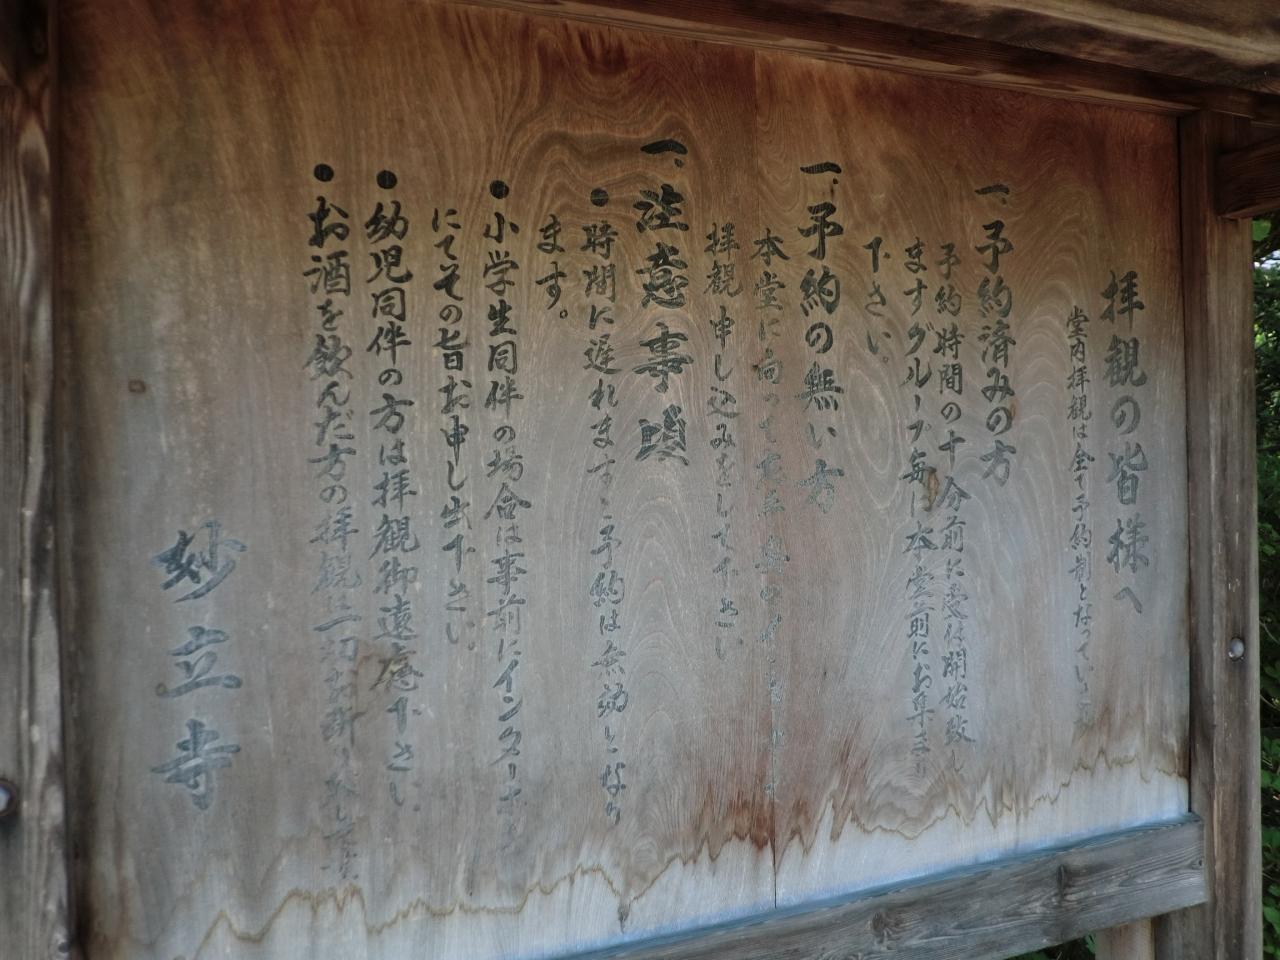 拝観の皆様へ
堂内拝観は全て予約制となってい
一、予約済みの方
予約時間の十分前に受付開始致し
ますグループ毎に本堂前にお集まり
下さい。
一、予約の無い方
本堂に向って
拝観申し込みをして下さい
一、注意事項
●時間に遅れますと予約は無効となり
ます。
●小学生同伴の場合は事前にインターホン
にてその旨お申し出下さい。
●幼児同伴の方は拝観御遠慮下さい
●お酒を飲んだ方の拝観一切お断り致し
妙立寺